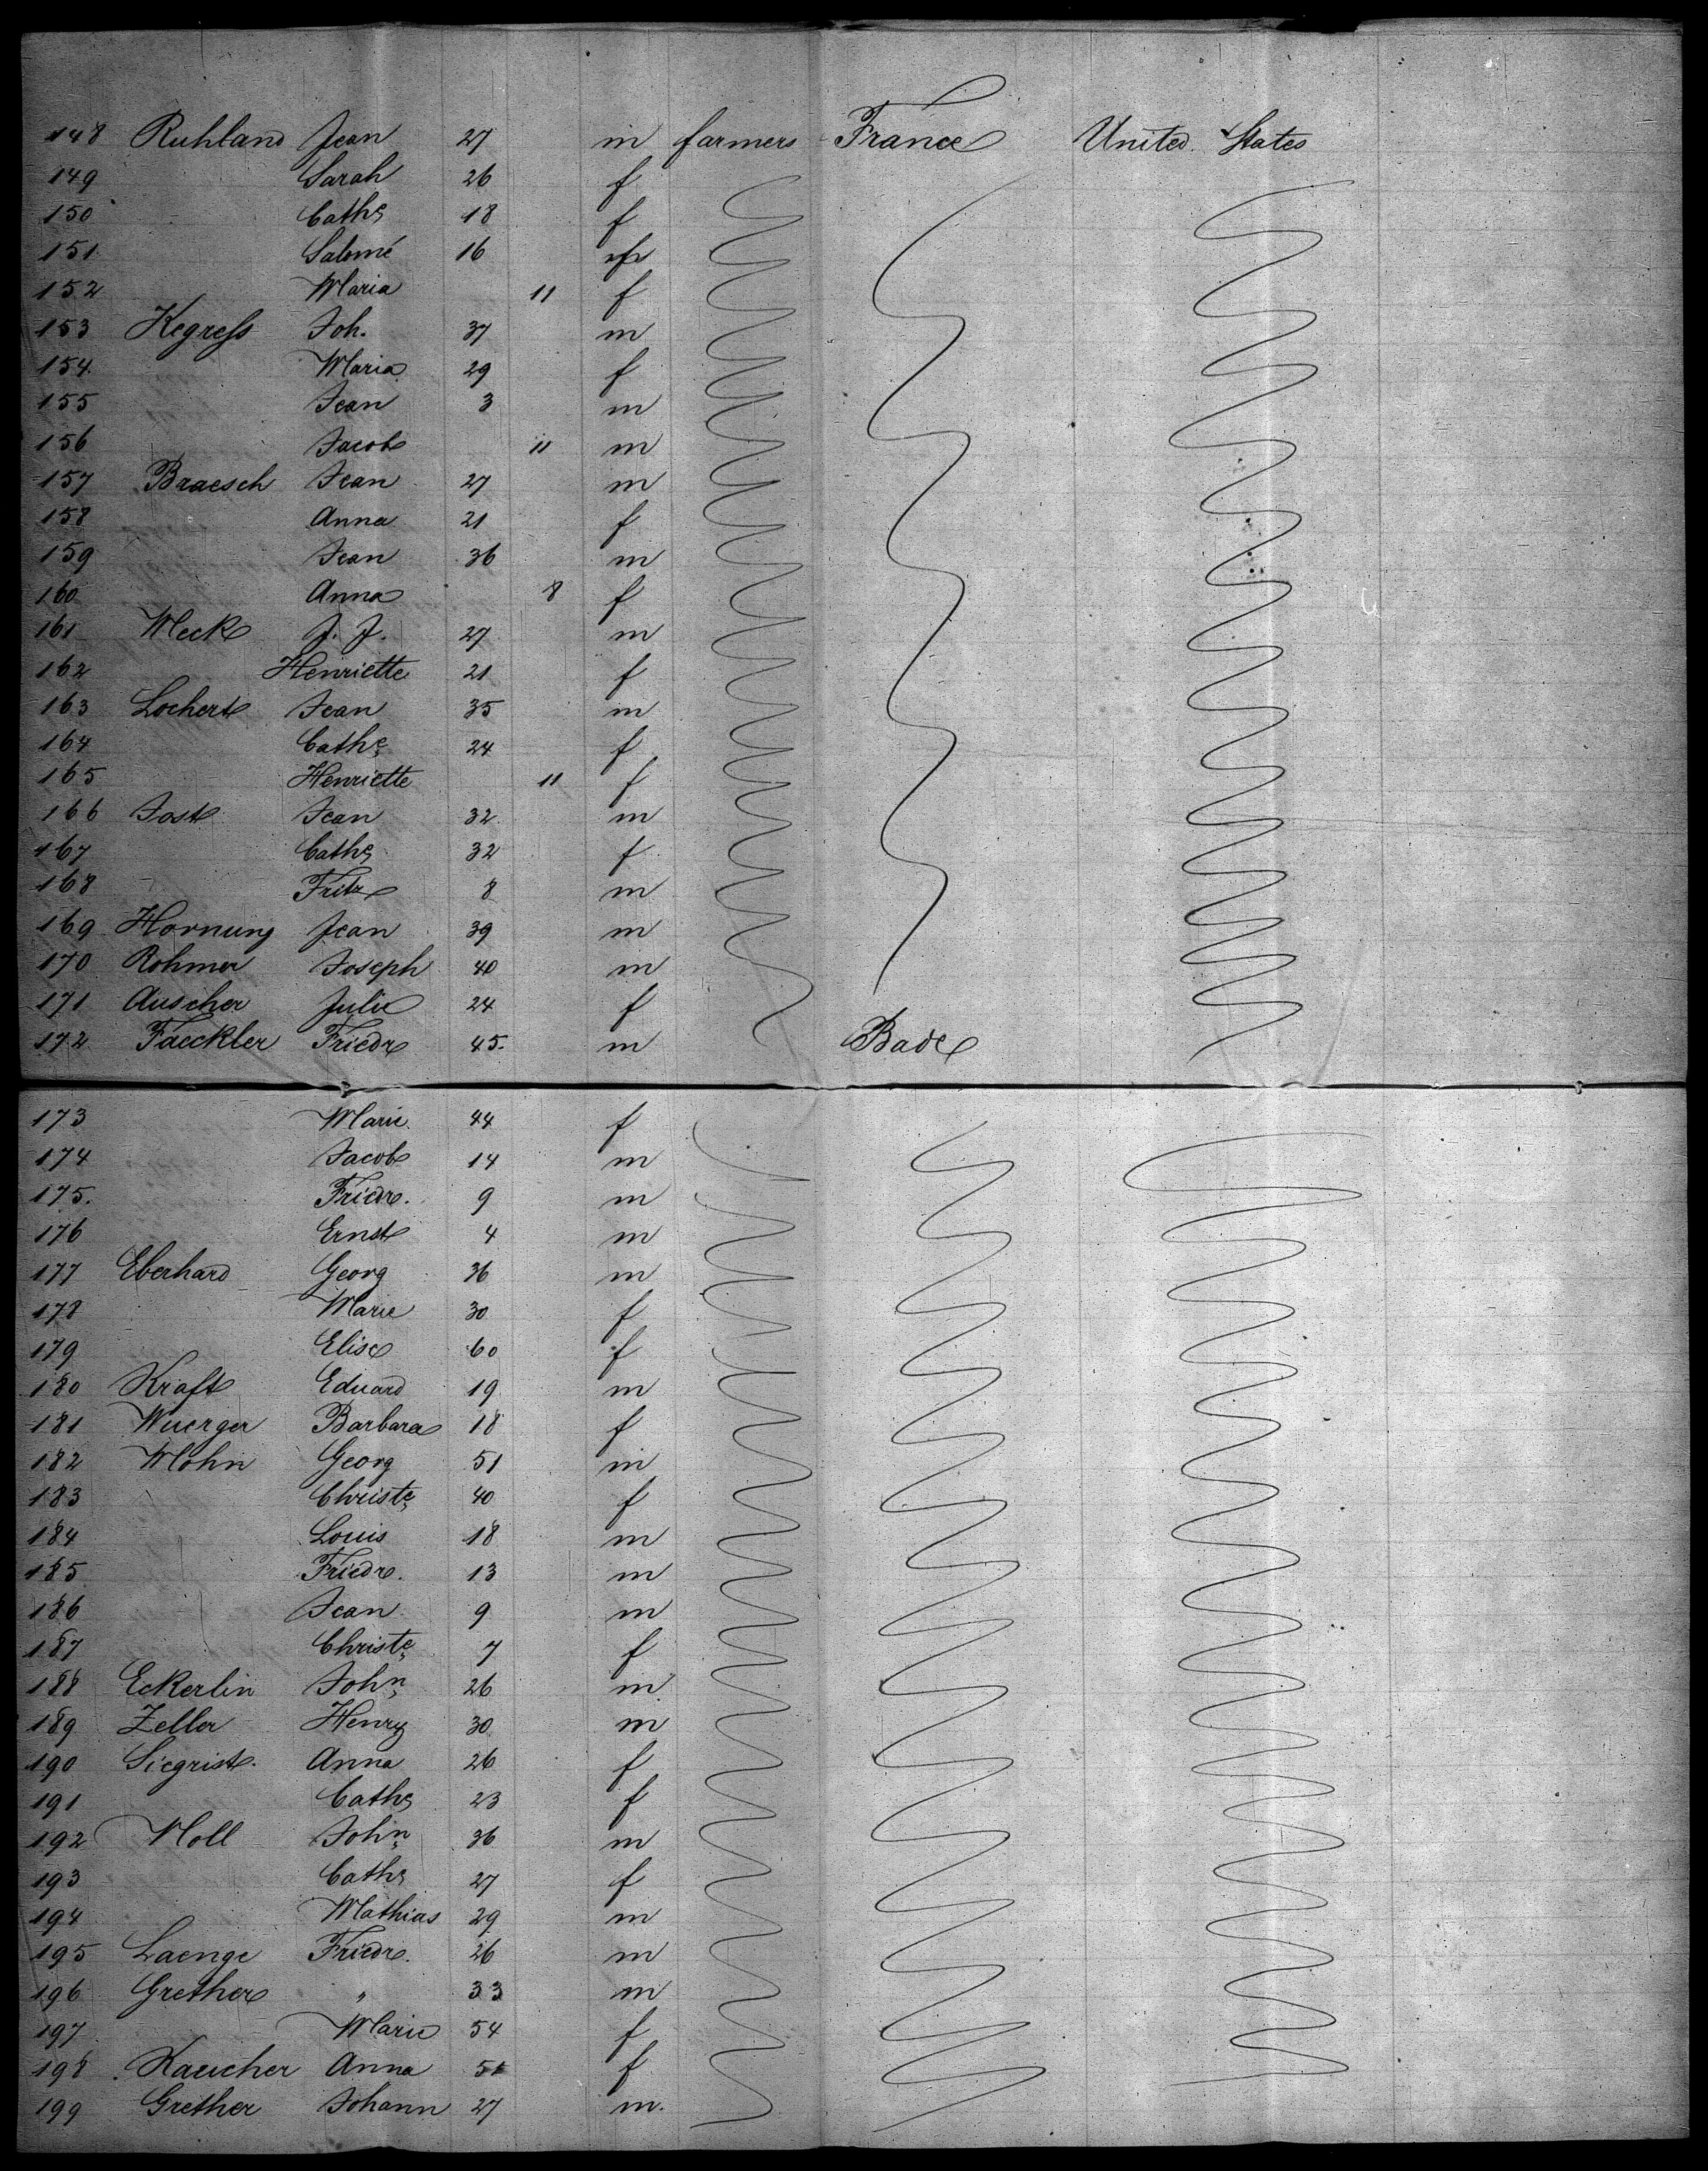 148 Ruhland Jean 27 m farmers France United States
149 Sarah 26 f
150 Cathe 18 f
151 Salomé 16
152 Maria 11 f
153 Kegress Joh. 37 m
154. Maria 29 f
155 Jean 3 m
156 Jacob 11 m
157 Braesch Jean 27 m
158 Anna 21 f
159 Jean 36 m
160 Anna 8 f
161 Meck J. J. 27 m
162 Henriette 21 f
163 Lochert Jean 35 m
164 Cathe 24 f
165 Henriette 11 f
166 Jost Jean 32 m
167 Cathe 32 f
168 Fritz 8 m
169 Hornung Jean 39 m
170 Rohmer Joseph 40 m
171 Auscher Julie 24 f
172 Faeckler Friedr 45. m Bade
173 Marie 44 f
174 Jacob 14 m
175. Friedr. 9 m
176 Ernst 4 m
177 Eberhard Georg 36 m
178 Marie 30 f
179 Elise 60 f
180 Kraft Eduard 19 m
181 Wuerger Barbara 18 f
182 Mohn Georg 51 m
183 Christe 40 f
184 Louis 18 m
185 Friedr. 13 m
186 Jean 9 m
187 Christe 7 f
188 Eckerlin John 26 m
189 Zeller Henry 30 m
190 Siegrist Anna 26 f
191 Cathe 23 f
192 Moll John 36 m
193 Cathe 27 f
194 Mathias 29 m
195 Laenge Friedr. 26 m
196 Grether " 33 m
197 Marie 54 f
198 Kaucher Anna f
199 Grether Johann 27 m.